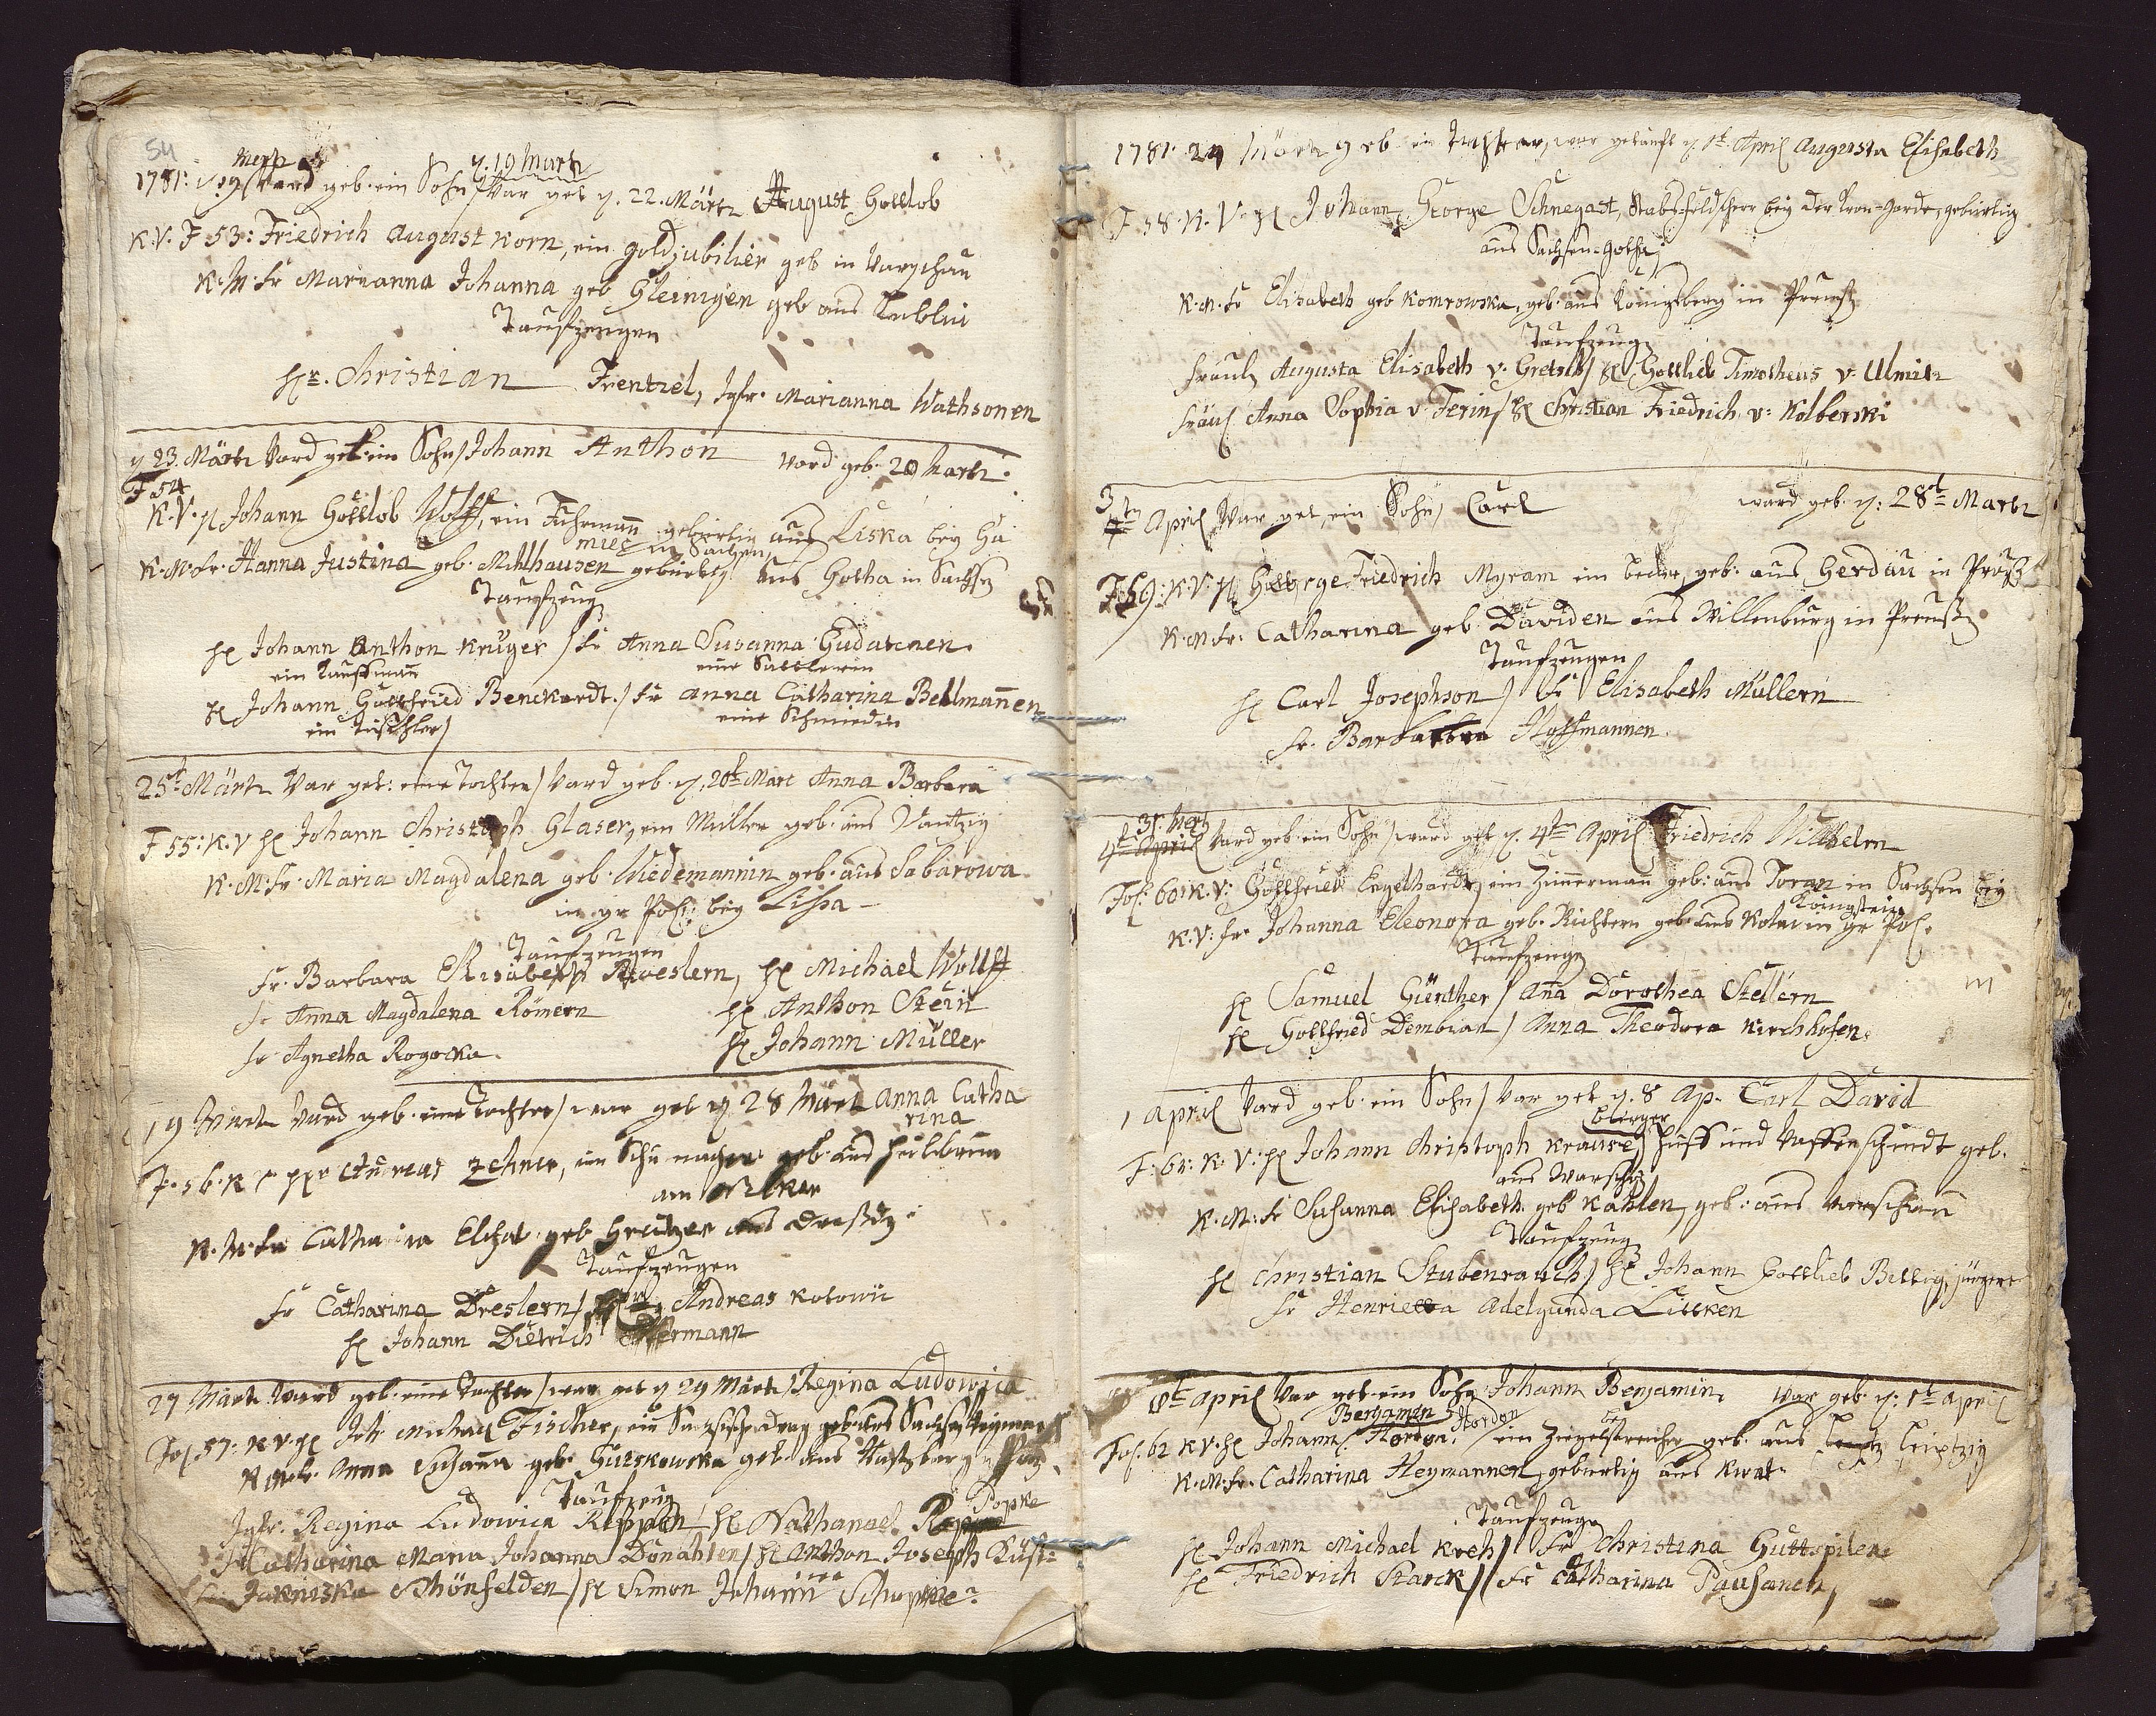 54
Mertz d. 19 Martz
1781: ward geb. ein Sohn / War get d. 22. Märtz August Gottlob
K.V. F 53: Friedrich August Korn, ein Goldjubilier geb in Warschau
K.M. Fr Marianna Johanna geb Gleinigen geb aus Lublin
Taufzeugen
Hr. Christian Frentzel, Jgfr. Marianna Wathsonen
d 23. Märtz Ward get ein Sohn / Johann Anthon ward geb. 20 Martz.
F 54
K.V. H Johann Gottlob Wolff, ein Fuhrmann gebürtig aus Liska bey Ha
in Sachsen
K.M. Fr. Hanna Justina geb. Mihlhausen gebürtig aus Gotha in Sachsen
Taufzeug
H Johann Anthon Krüger / Fr Anna Susanna Gudatenen
ein Kauffmann eine Sattlerin
H Johann Gottfried Benckardt. / Fr Anna Catharina Bellmannen
ein Tischler / eine Schmiedin
25t Märtz War get: eine Tochter / Ward geb. d. 20t Mart Anna Barbara
F 55: K.V H Johann Christoph Glaser, ein Müller geb. aus
K.M. Fr. Maria Magdalena geb. Wiedemannin geb. aus Sabarowa
in gr Pol: bey Lissa
Taufzeugen
Fr. Barbara Elisabeth Roeslern, H Michael Wolff
Fr Anna Magdalena Römern H Anthon Stein
Fr Agnetha Rogocka. H Johann Müller
19 Mart Ward geb. eine Tochter / war get d 28 Märt Anna Catha
rina
F. 56. K V Hr Andreas Zehner, ein Schumacher geb. aus Heilbrun
am Neker
K.M. Fr Catharina Elisab. geb. Grützer aus Dresden
Taufzeugen
Fr Catharina Dreslern / Andreas Kotowii
H Johann Dietrich
27 Märtz Ward geb. eine Tochter / war get d 29 Märtz / Regina Ludowica
Fol 57: K V. H Joh Michael Fischer, ein geb. aus Sachsen
K M. Fr. Anna Susanna geb. Gurskowska geb. aus
Taufzeug
Jgfr. Regina Ludowica Reppen / H Nathanael Popke
Fr Catharina Maria Johanna Donahlen / H Anthon Joseph Rüst:
Schönfelden / H Simon Johann Schopke
1781. 29 Märtz geb. ein Tochter, war getauft d 1t April Augusta Elisabeth
F 58. K. V. H Johann George Schnegast, Stabsfeldscherr bey der Cron-Garde, gebürtig
aus Sachsen-Gotha
K.M. Fr Elisabeth geb Komrowska, geb. aus Königsberg in Preuss
Taufzeug
Fräul Augusta Elisabeth v. / H Gottlieb Timotheus v. Ulmitz
Fräul Anna Sophia v. Terin / H Christian Friedrich v: Kolberski
3tn April War get, ein Sohn / Carl ward geb. d: 28t Martz
F. 59: K.V. H George Friedrich Myram ein becker, geb. aus Gerdau in Preuß
K.M Fr: Catharina geb. Daviden aus Willenburg in Preuß
Taufzeugen
H Carl Josephson / Fr Elisabeth Müllern
Fr. Barbara Hoffmannen.
31. Mertz
4t April Ward geb. ein Sohn / ward get d. 4tn April Friedrich Wilhelm
Fol: 60: K.V: Gottfried Engelhardt, ein Zimmerman geb: aus Toran in Sachsen bey
Königstein
K.V: Fr. Johanna Eleonora geb. Richtern geb. aus in gr Pol.
Taufzeuge
H Samuel Günther / Ana Dorothea Stellern
H Gottfried Dembian / Anna Theodora Kirchhofen.
1 April Ward geb. ein Sohn / War get d. 8 Ap. Carl David
Bürger
F: 61: K. V: H Johann Christoph Krause / Huff und Waffenschmidt geb.
aus Warschau
K.M: Fr Susanna Elisabeth geb Kahlen, geb. aus Warschau
Taufzeug
H Christian Stubenrauch / H Johann Gottlieb Bettig
Fr Henrietta Adelgunda Littken
8t April War get. ein Sohn Johann Benjamin. war geb d: 1t April
Benjamin Hordon
Fol. 62 K V. H Johann Hordon. / ein Ziegelstreicher geb. aus Leiptzig
K.M. Fr. Catharina Heymannen, gebürtig aus
Taufzeuge
H Johann Michael Kreh / Fr Christina
H Friedrich Starck / Fr Catharina Pausanen,